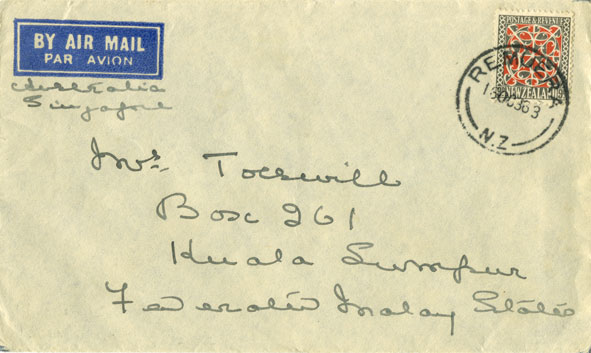 BY AIR MAIL
PAR AVION
Australia
Singapore
POSTAGE & REVENUE
NEW ZEALAND
REMUERA
N.Z
Mrs Toeswill
Box 261
Kuala Lumpur
Federated Malay States